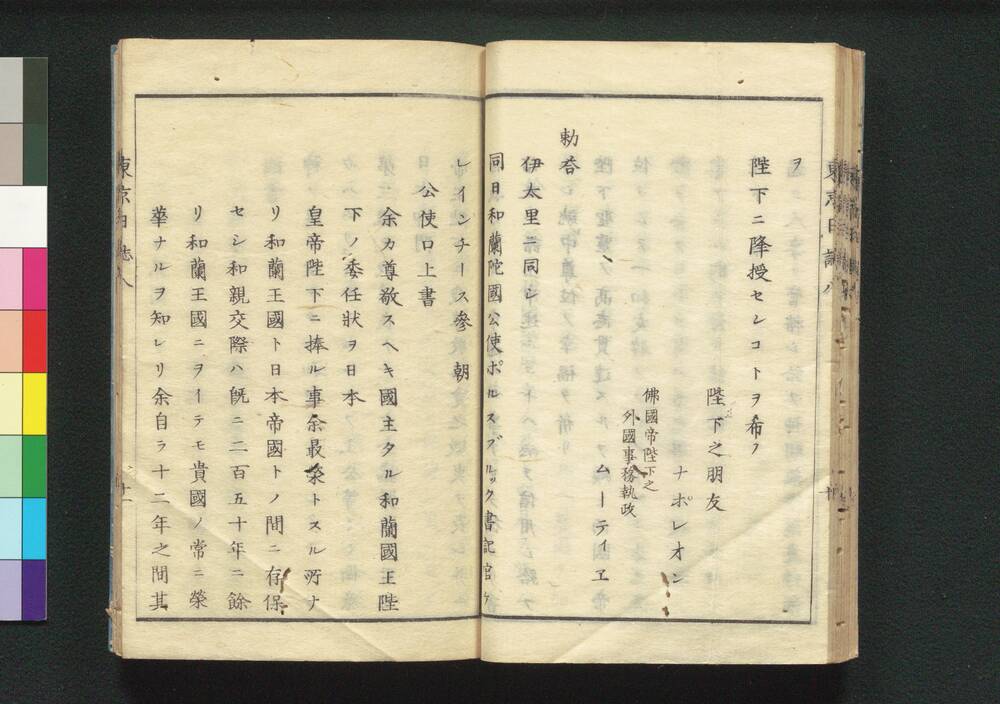 ヲ
陛下ニ降授セレコトヲ希フ
陛下之朋友
ナポレオン
佛國帝陛下之
外國事務執政
ムーテイヱ
勅答
伊太里ニ同シ
同日和蘭陀國公使ポルスブルック書記官ケ
レインチース參朝
公使口上書
余カ尊敬スヘキ國主タル和蘭國王陛
下ノ委任狀ヲ日本
皇帝陛下ニ捧ル事余最榮トスル所ナ
リ和蘭王國ト日本帝國トノ間ニ存保
セシ和親交際ハ既ニ二百五十年ニ餘
リ和蘭王國ニヲイテモ貴國ノ常ニ榮
華ナルヲ知レリ余自ラ十二年之間其
東京日誌八
十一